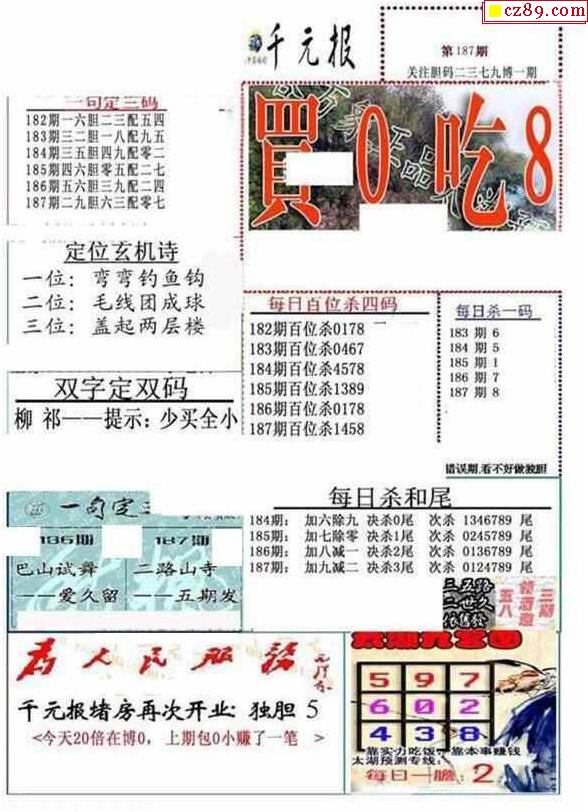 cz89.com
千元报
第187期
关注胆码二三七九博一期
買0吃8
一句定三码
182期一六胆二三配五四
183期三二胆一八配九五
184期三五胆四九配零二
185期四六胆零五配二七
186期五六胆三九配二四
187期二九胆六三配零七
定位玄机诗
一位：弯弯钓鱼钩
二位：毛线团成球
三位：盖起两层楼
双字定双码
柳 祁——提示：少买全小
每日百位杀四码
182期百位杀0178
183期百位杀0467
184期百位杀4578
185期百位杀1389
186期百位杀0178
187期百位杀1458
每日杀一码
183 期 6
184 期 5
185 期 1
186 期 7
187 期 8
错误期,看不好做独胆
一句定三
186期
巴山试舞
——爱久留
187期
二路山寺
——五期发
每日杀和尾
184期： 加六除九 决杀0尾 次杀 1346789 尾
185期： 加七除零 决杀1尾 次杀 0245789 尾
186期： 加八减一 决杀2尾 次杀 0136789 尾
187期： 加九减二 决杀3尾 次杀 0124789 尾
三五路
二世久
依旧发
五八
领酒邀
三期
為人民服務
千元报堵房再次开业：独胆 5
<今天20倍在博0，上期包0小赚了一笔 >
太湖九宫图
5 9 7
6 0 2
4 3 8
靠实力吃饭，靠本事赚钱
太湖预测专线：
每日一胆：2